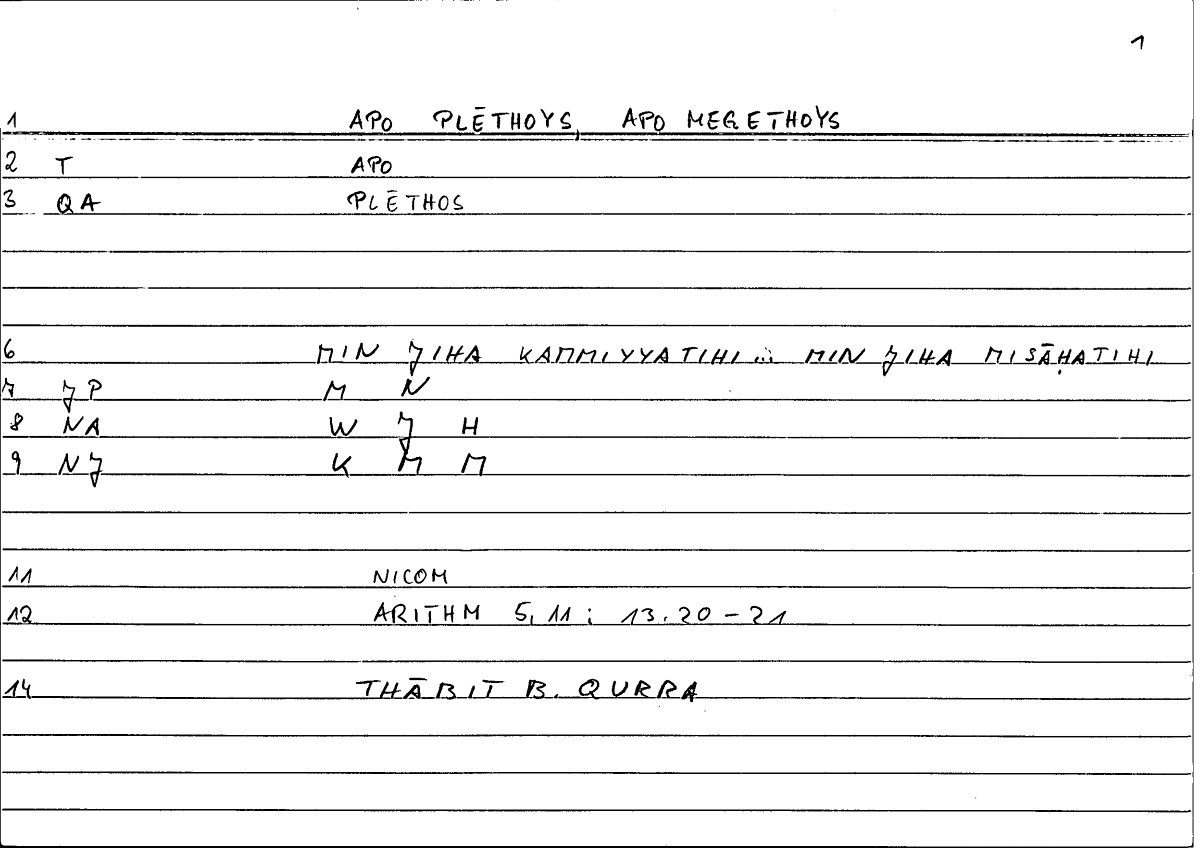 1
1 APO PLĒTHOYS, APO MEGETHOYS
2 T APO
3 QA PLĒTHOS
6 MIN JIHA KAMMIYYATIHI ... MIN JIHA MISĀḤATIHI
7 JP M N
8 NA W J H
9 NJ K M M
11 NICOM
12 ARITHM 5,11 ; 13.20-21
14 THĀBIT B. QURRA